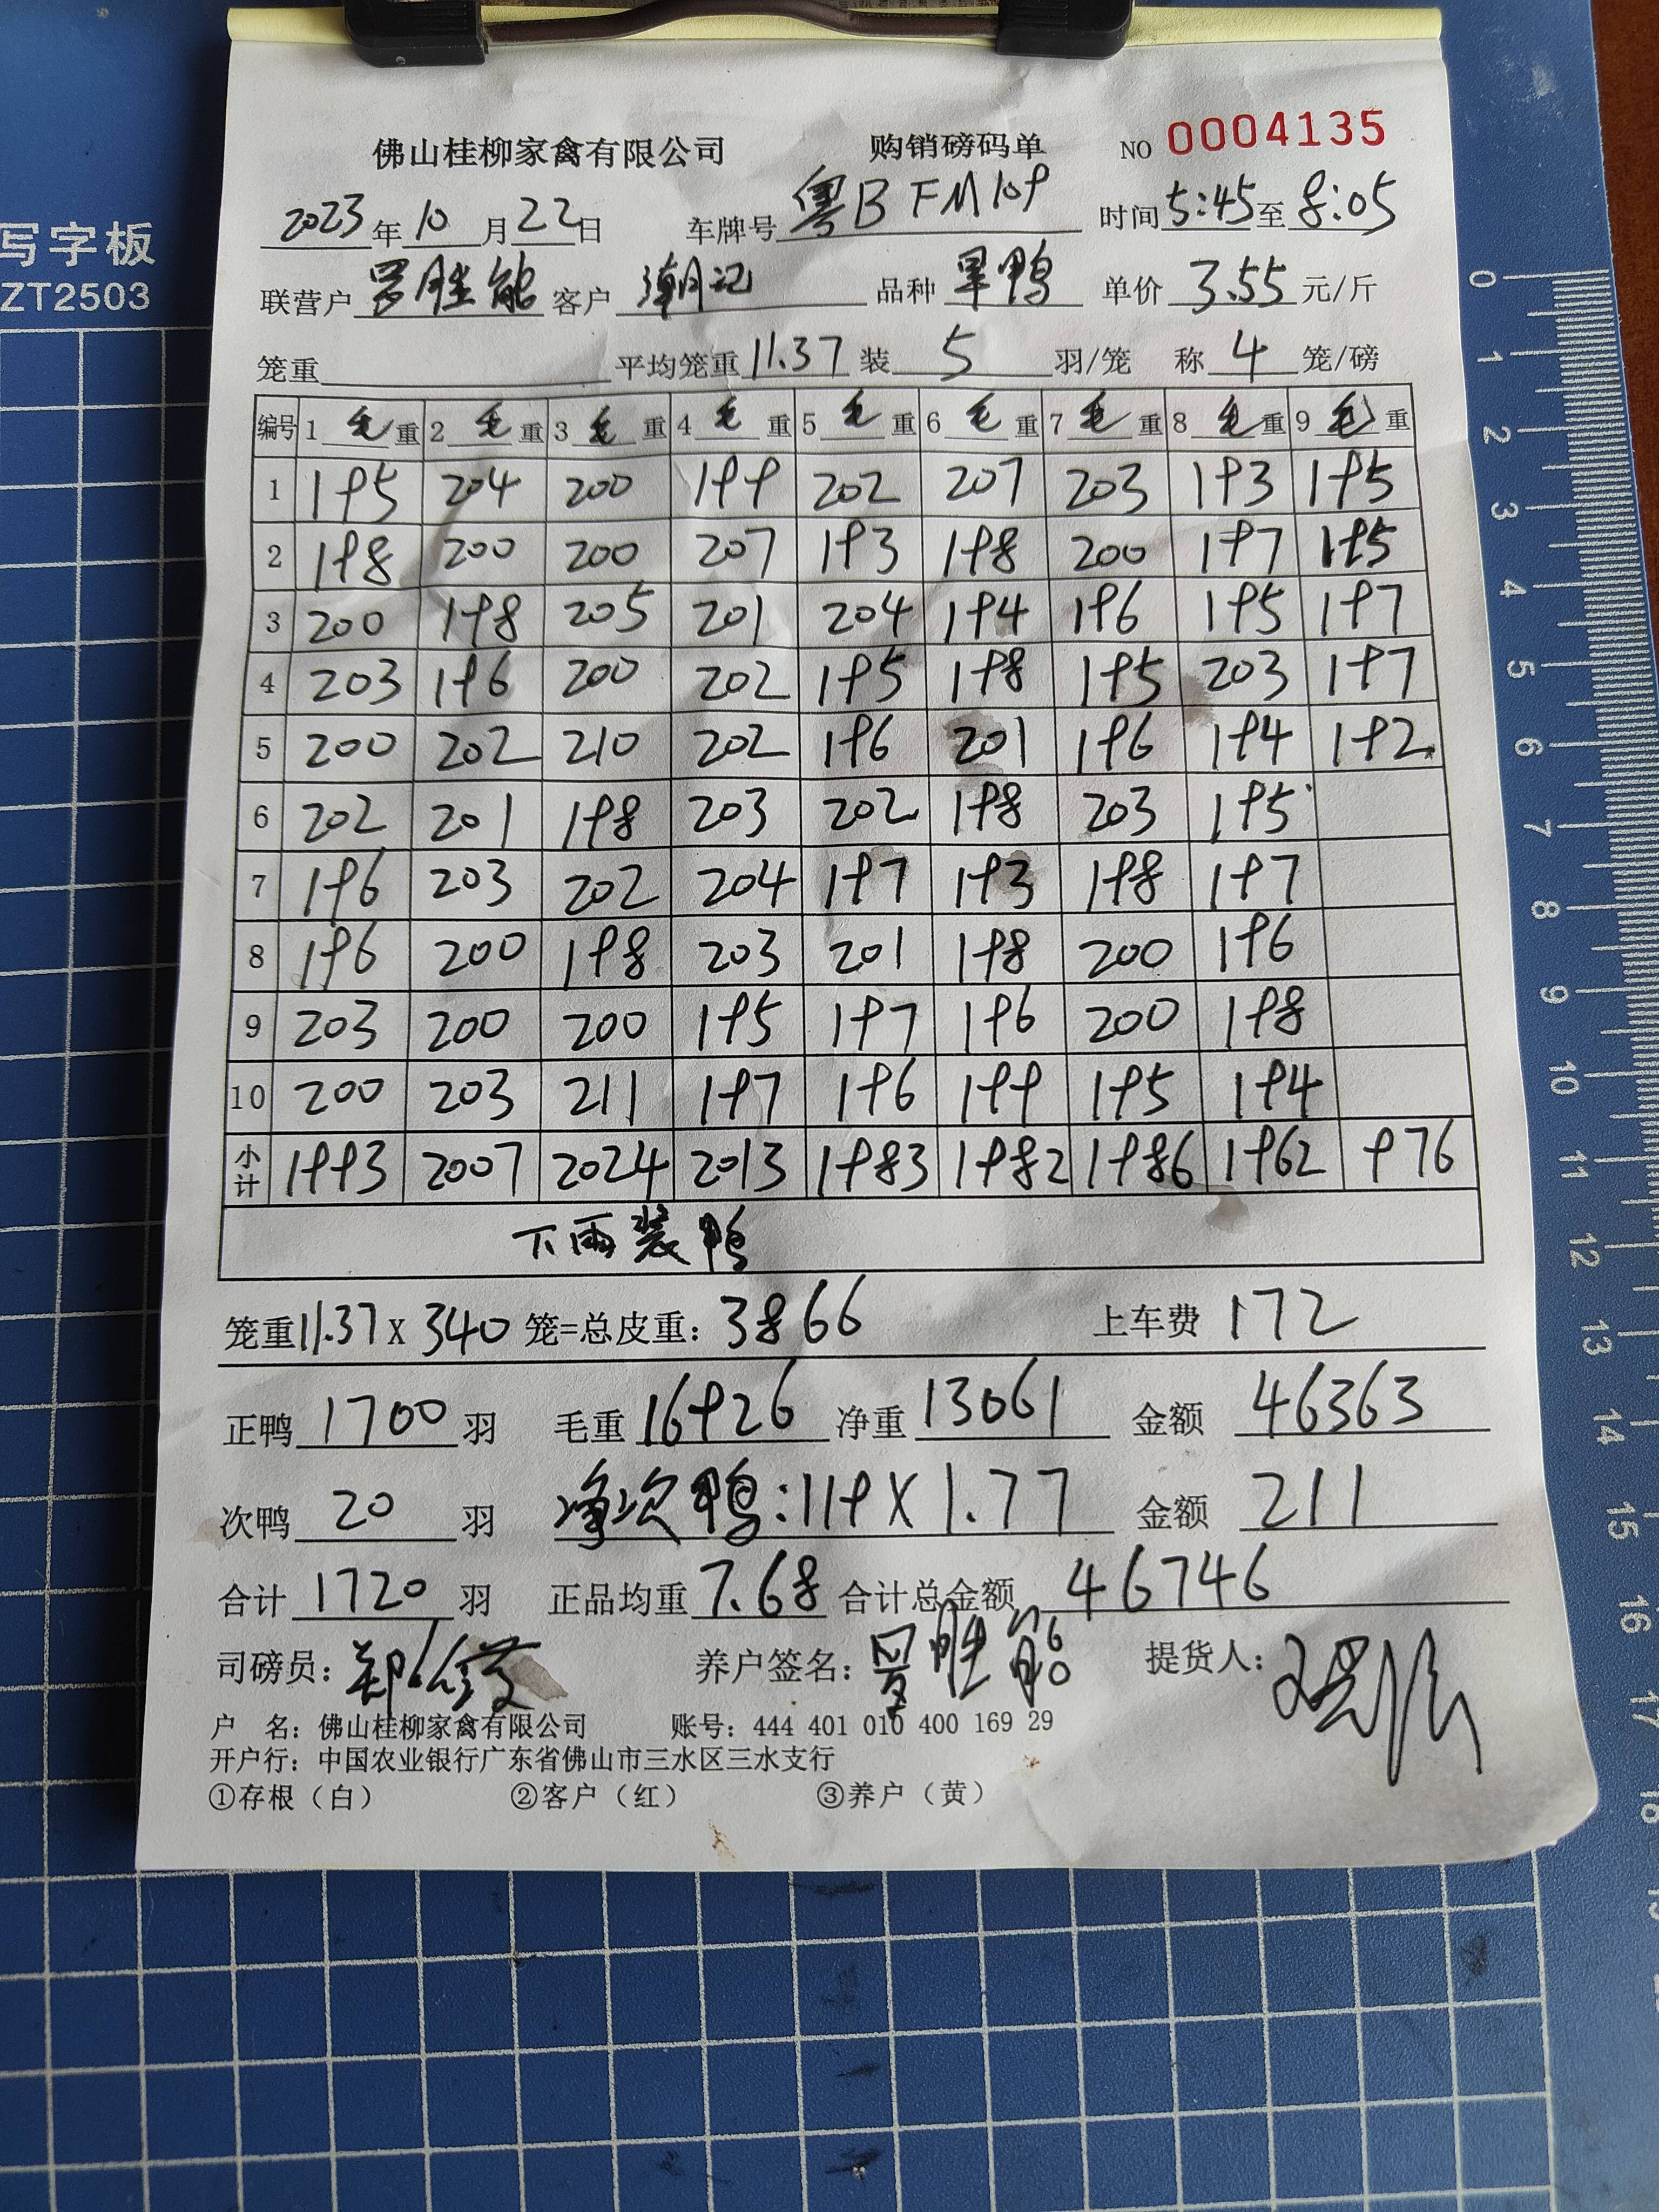 写字板
ZT2503
佛山桂柳家禽有限公司 购销磅码单 NO 0004135
2023年10月22日 车牌号 粤B FM109 时间 5:45至8:05
联营户 罗胜能 客户 潮记 品种 旱鸭 单价 3.55 元/斤
笼重 平均笼重 11.37 装 5 羽/笼 称 4 笼/磅
编号 1毛重 2毛重 3毛重 4毛重 5毛重 6毛重 7毛重 8毛重 9毛重
1 195 204 200 199 202 207 203 193 195
2 198 200 200 207 193 198 200 197 195
3 200 198 205 201 204 194 196 195 197
4 203 196 200 202 195 198 195 203 197
5 200 202 210 202 196 201 196 194 192
6 202 201 198 203 202 198 203 195
7 196 203 202 204 197 193 198 197
8 196 200 198 203 201 198 200 196
9 203 200 200 195 197 196 200 198
10 200 203 211 197 196 199 195 194
小计 1993 2007 2024 2013 1983 1982 1986 1962 976
下雨装鸭
笼重11.37X340笼=总皮重：3866 上车费 172
正鸭 1700 羽 毛重 16926 净重 13061 金额 46363
次鸭 20 羽 净次鸭:119X1.77 金额 211
合计 1720 羽 正品均重 7.68 合计总金额 46746
司磅员： 养户签名：罗胜能 提货人：
户 名：佛山桂柳家禽有限公司 账号：444 401 010 400 169 29
开户行：中国农业银行广东省佛山市三水区三水支行
①存根（白） ②客户（红） ③养户（黄）
0
1
2
3
4
5
6
7
8
9
10
11
12
13
14
15
16
17
18